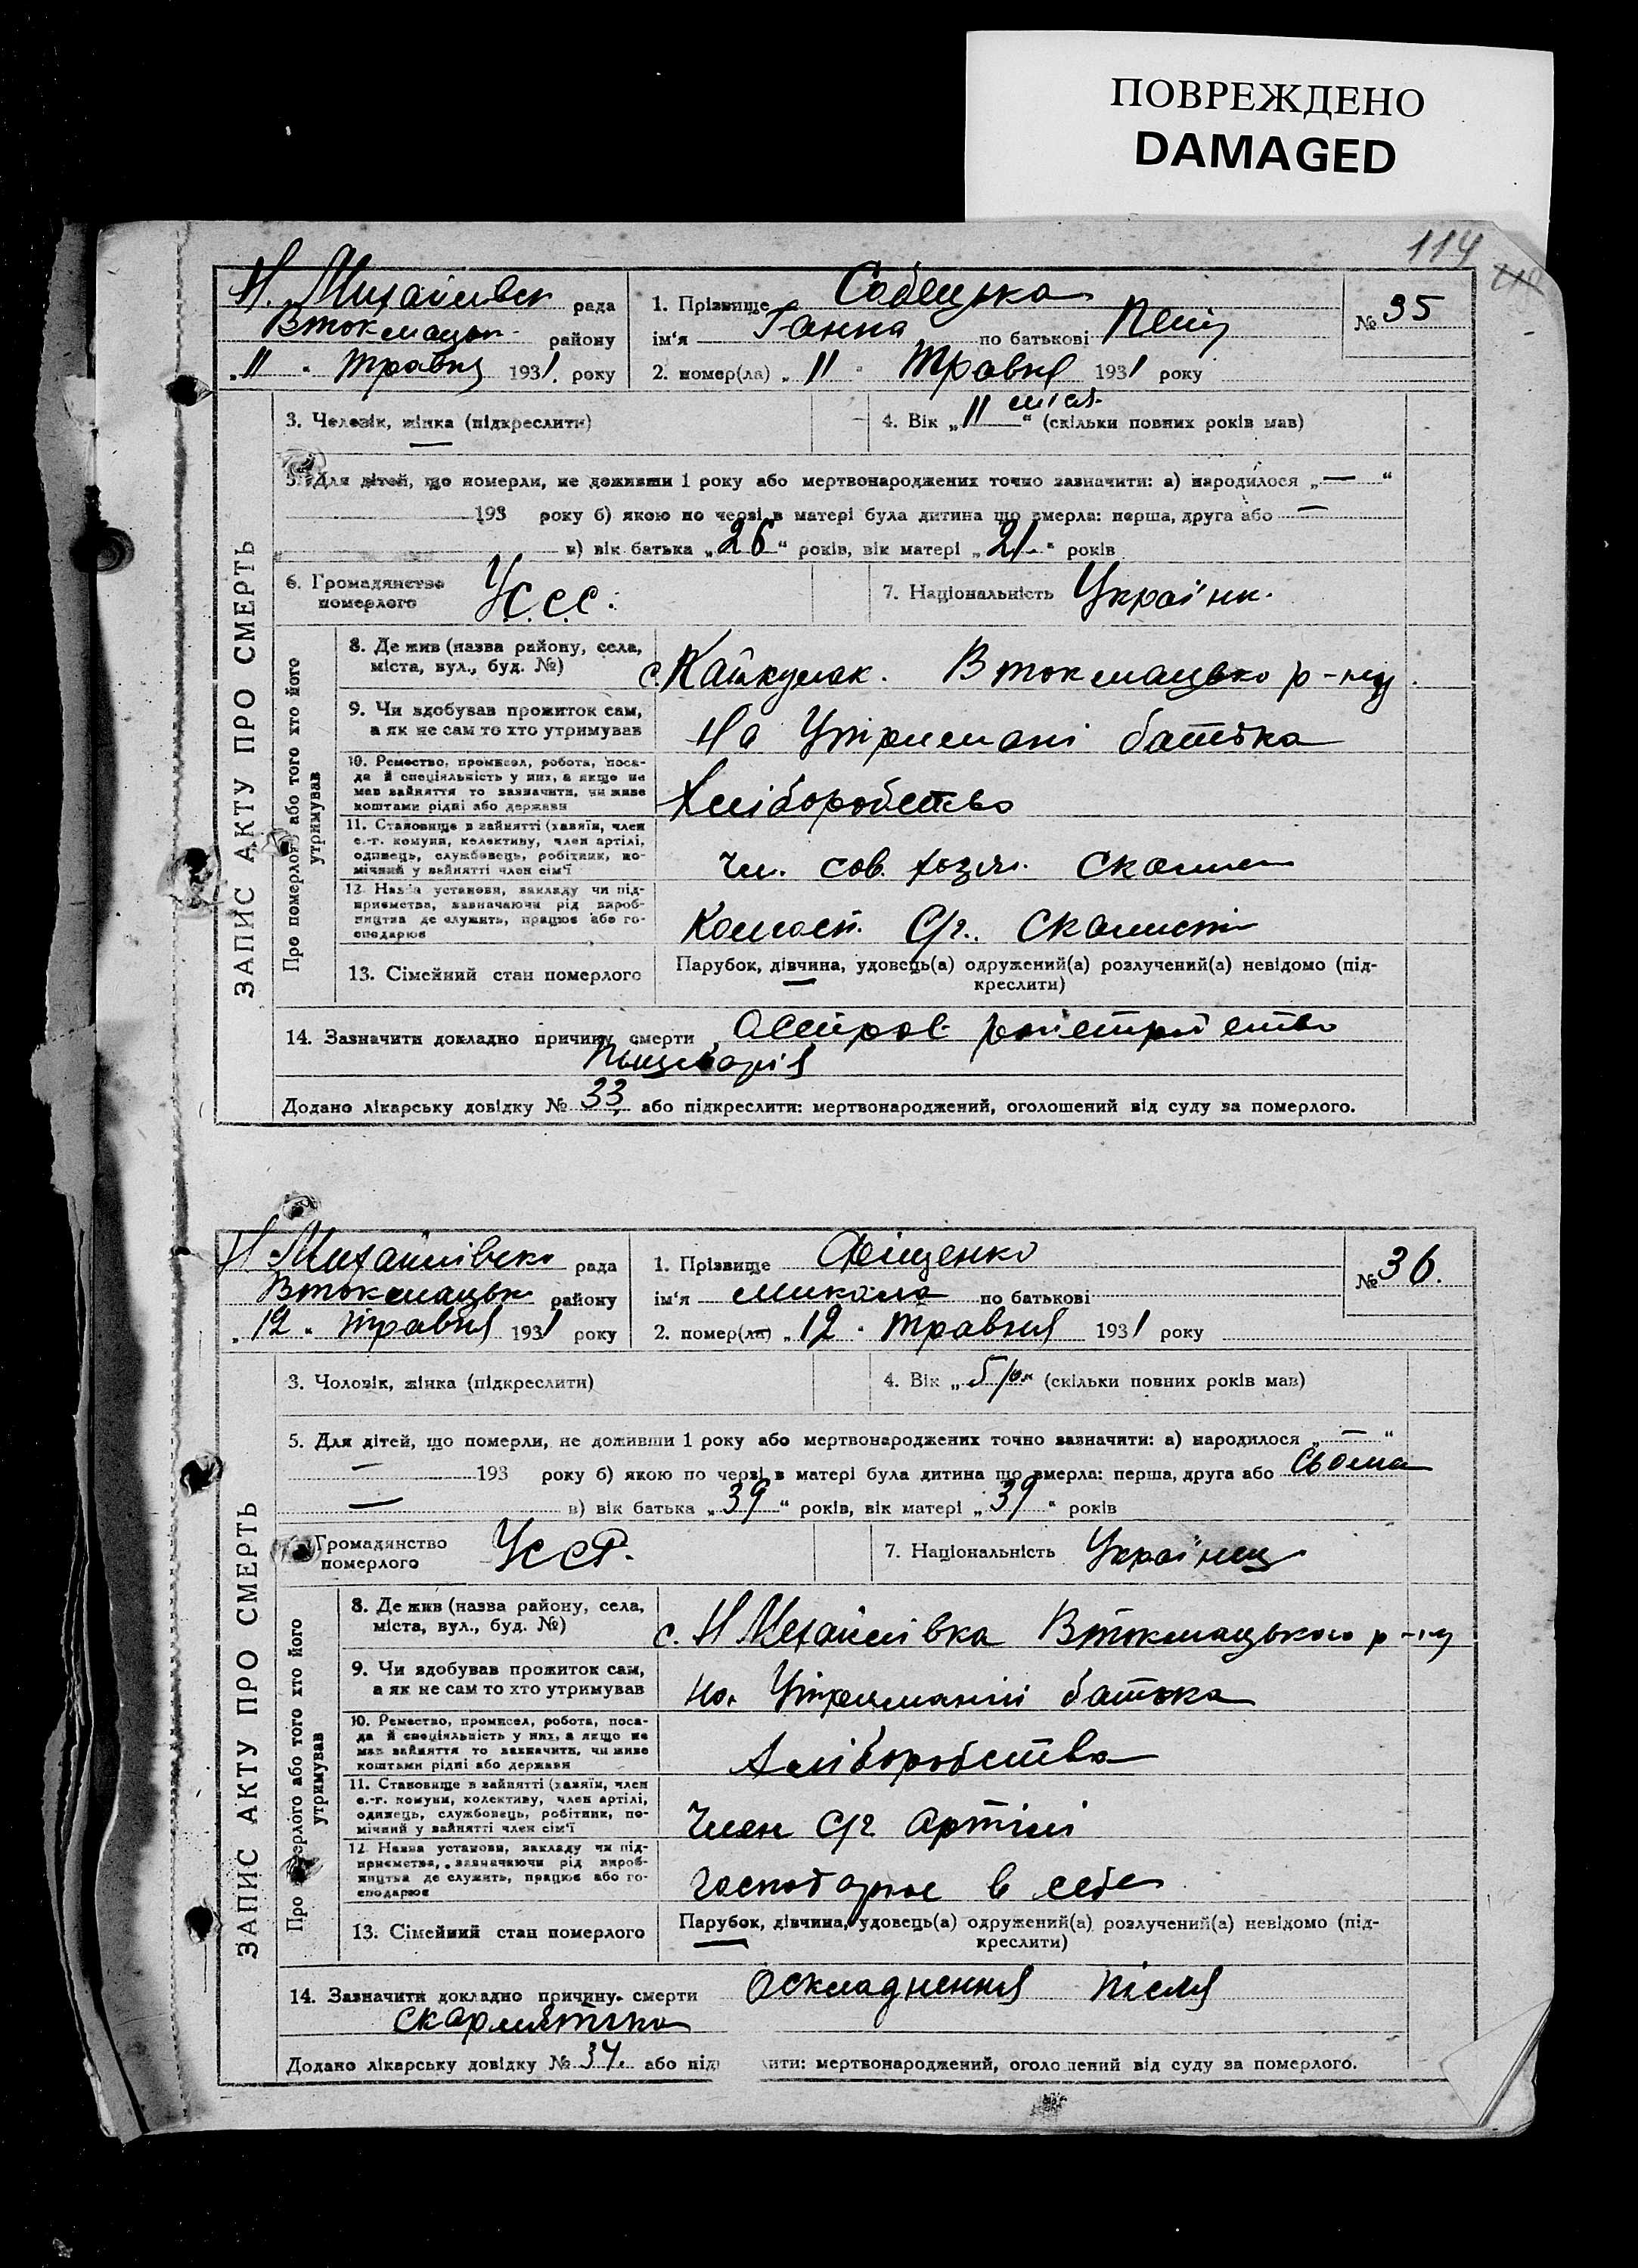 ПОВРЕЖДЕНО
DAMAGED
114
Н. Михайлівск рада
Втокмацьк. району
„11“ травня 1931. року
1. Прізвище Собецька
ім'я Ганна по батькові
2. помер(ла) „11“ Травня 1931 року
№ 35
ЗАПИС АКТУ ПРО СМЕРТЬ
3. Человік, жінка (підкреслити)
4. Вік „11 міся.“ (скільки повних років мав)
5. Для дітей, що померли, не доживши 1 року або мертвонароджених точно зазначити: а) народилося „—“
193 року б) якою по черзі в матері була дитина що вмерла: перша, друга або —
в) вік батька „26“ років, вік матері „21.“ років
6. Громадянство
померлого
У.С.С.С.
7. Національність Україінк.
Про померлого або того хто його
утримував
8. Де жив (назва району, села,
міста, вул., буд. №)
с. Кайкулак. Втокмацько р-ну.
9. Чи здобував прожиток сам,
а як не сам то хто утримував
На Утримані батька
10. Ремество, промисел, робота, поса-
да й спеціяльність у них, а якщо не
мав зайняття то зазначити, чи живе
коштами рідні або держави
Хліборобство
11. Становище в зайнятті (хазяїн, член
с.-г. комуни, колективу, член артілі,
одинець, службовець, робітник, по-
мічний у зайнятті член сім'ї
Чл. сов. хозя.
12. Назва установи, закладу чи під-
приємства, зазначаючи рід вироб-
ництва де служить, працює або го-
сподарює
С/г.
13. Сімейний стан померлого
Парубок, дівчина, удовець(а) одружений(а) розлучений(а) невідомо (під-
креслити)
14. Зазначити докладно причину смерти
Додано лікарську довідку № 33 або підкреслити: мертвонароджений, оголошений від суду за померлого.
Н. Михайлівско рада
Втокмацьк району
„12“ травня 1931 року
1. Прізвище
ім'я Микола по батькові
2. помер(ла) „12“ травня 1931 року
№ 36.
ЗАПИС АКТУ ПРО СМЕРТЬ
3. Чоловік, жінка (підкреслити)
4. Вік „5 рок (скільки повних років мав)
5. Для дітей, що померли, не доживши 1 року або мертвонароджених точно зазначити: а) народилося „—“
— 193 року б) якою по черзі в матері була дитина що вмерла: перша, друга або Сьома
— в) вік батька „39“ років, вік матері „39“ років
Громадянство
померлого
УССР.
7. Національність Україінец
Про померлого або того хто його
утримував
8. Де жив (назва району, села,
міста, вул., буд. №)
с. Н Михайлівка Втокмацького р-ну
9. Чи здобував прожиток сам,
а як не сам то хто утримував
на Утриманні батька
10. Ремество, промисел, робота, поса-
да й спеціяльність у них, а якщо не
мав зайняття то зазначити, чи живе
коштами рідні або держави
Хліборобства
11. Становище в зайнятті (хазяїн, член
с.-г. комуни, колективу, член артілі,
одинець, службовець, робітник, по-
мічний у зайнятті член сім'ї
Член С/г артілі
12. Назва установи, закладу чи під-
приємства, зазначаючи рід вироб-
ництва де служить, працює або го-
сподарює
господарює в себе
13. Сімейний стан померлого
Парубок, дівчина, удовець(а) одружений(а) розлучений(а) невідомо (під-
креслити)
14. Зазначити докладно причину смерти Оскладнення після
скарлятіна
Додано лікарську довідку № 34. або під ити: мертвонароджений, оголошений від суду за померлого.